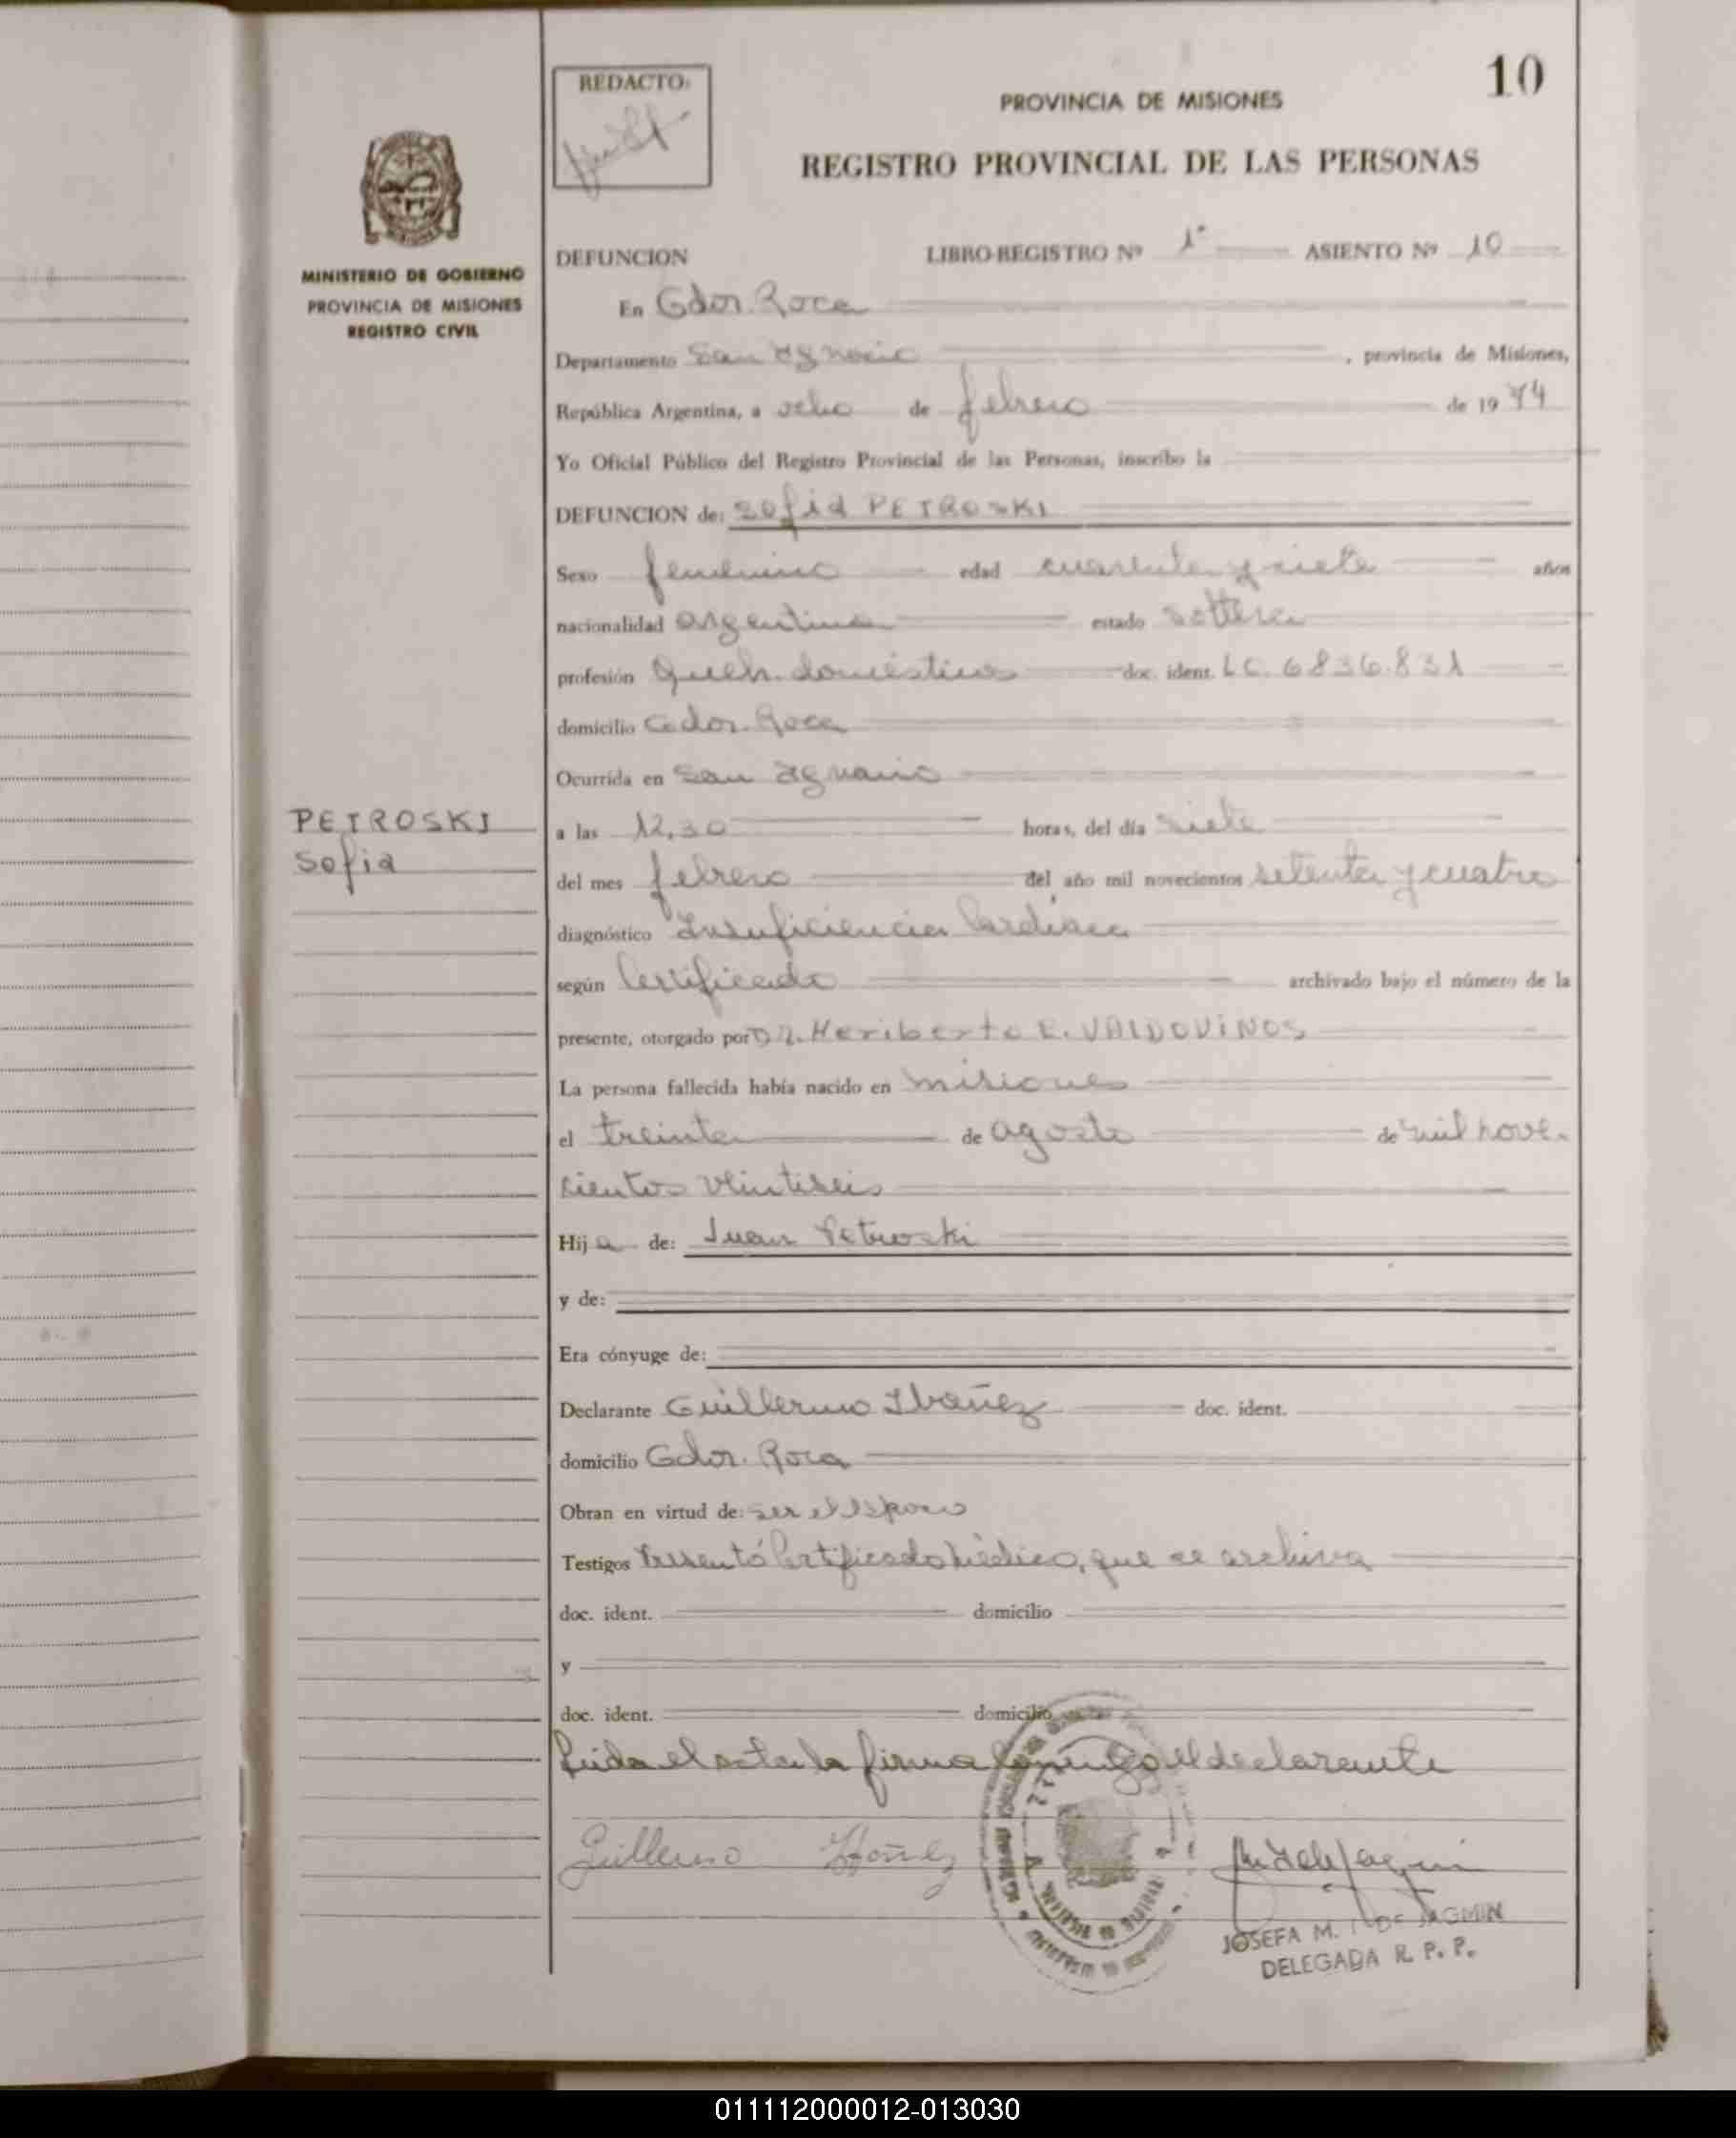 10
REDACTO:
PROVINCIA DE MISIONES
REGISTRO PROVINCIAL DE LAS PERSONAS
MINISTERIO DE GOBIERNO
PROVINCIA DE MISIONES
REGISTRO CIVIL
DEFUNCION LIBRO-REGISTRO Nº 1º ASIENTO Nº 10
En Gdor. Roca
Departamento San Ignacio , provincia de Misiones,
República Argentina, a ocho de febrero de 1974
Yo Oficial Público del Registro Provincial de las Personas, inscribo la
DEFUNCION de: Sofia PETROSKI
Sexo femenino edad cuarenta y siete años
nacionalidad argentina estado soltera
profesión Queh. domésticos doc. ident. LC. 6836.831
domicilio Gdor. Roca
Ocurrida en San Ignacio
PETROSKI
Sofia
a las 12,30 horas, del día siete
del mes febrero del año mil novecientos setenta y cuatro
diagnóstico Insuficiencia Cardiaca
según Certificado archivado bajo el número de la
presente, otorgado por Dr. Heriberto E. VALDOVINOS
La persona fallecida había nacido en Misiones
el treinta de agosto de mil nove-
cientos veintiseis
Hija de: Juan Petroski
y de:
Era cónyuge de:
Declarante Guillermo Ibañez doc. ident.
domicilio Gdor. Roca
Obran en virtud de: ser el esposo
Testigos Presentó Certificado Médico, que se archiva
doc. ident. domicilio
y
doc. ident. domicilio
Leida el acta la firma Conmigo el declarante
Guillermo Ibañez
JOSEFA M. DE JAGMIN
DELEGADA R. P. P.
011112000012-013030